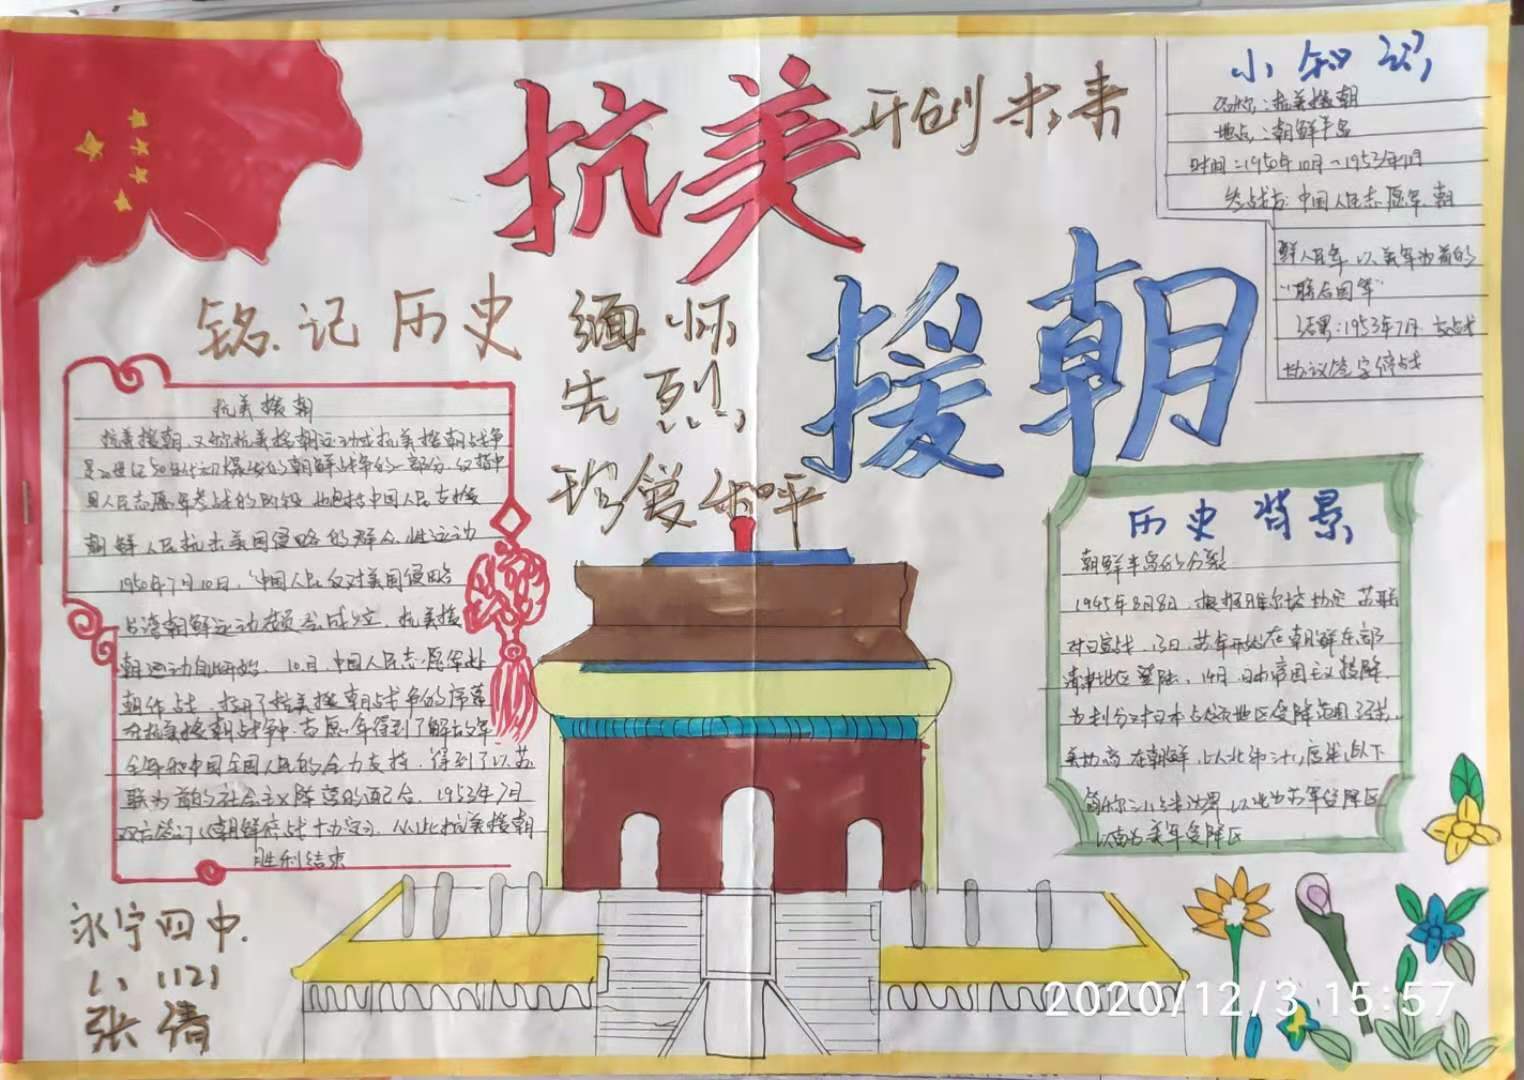 抗美
开创未来
援朝
铭记历史
缅怀
先烈
珍爱和平
小知识
名称:抗美援朝
地点:朝鲜半岛
时间:1950年10月-1953年7月
参战方:中国人民志愿军 朝
鲜人民军,以美军为首的
"联合国军"
结果:1953年7月
协议签字停战
抗美援朝
抗美援朝,又称抗美援朝运动或抗美援朝战争
是20世纪50年代初爆发的朝鲜战争的一部分,仅指中
国人民志愿军参战的阶段,也包括中国人民支援
朝鲜人民抗击美国侵略的群众性运动
1950年7月10日,"中国人民反对美国侵略
台湾朝鲜运动委员会成立,抗美援
朝运动自此开始,10月,中国人民志愿军赴
朝作战,拉开了抗美援朝战争的序幕
在抗美援朝战争中,志愿军得到了解放军
全军和中国全国人民的全力支持,得到了以苏
联为首的社会主义阵营的配合,1953年7月
双方签订《朝鲜停战协定》,从此抗美援朝
胜利结束
历史背景
朝鲜半岛的分裂
1945年8月8日,根据雅尔塔协定,苏联
对日宣战,13日,苏军开始在朝鲜东部
清津地区登陆,14日,日本帝国主义投降,
为划分对日本占领地区受降范围
美协商,在朝鲜,以北纬三十八度线,以下
简称三八线为界,以北为苏军受降区
以南为美军受降区
永宁四中
八(12)
张倩
2020/12/3 15:57